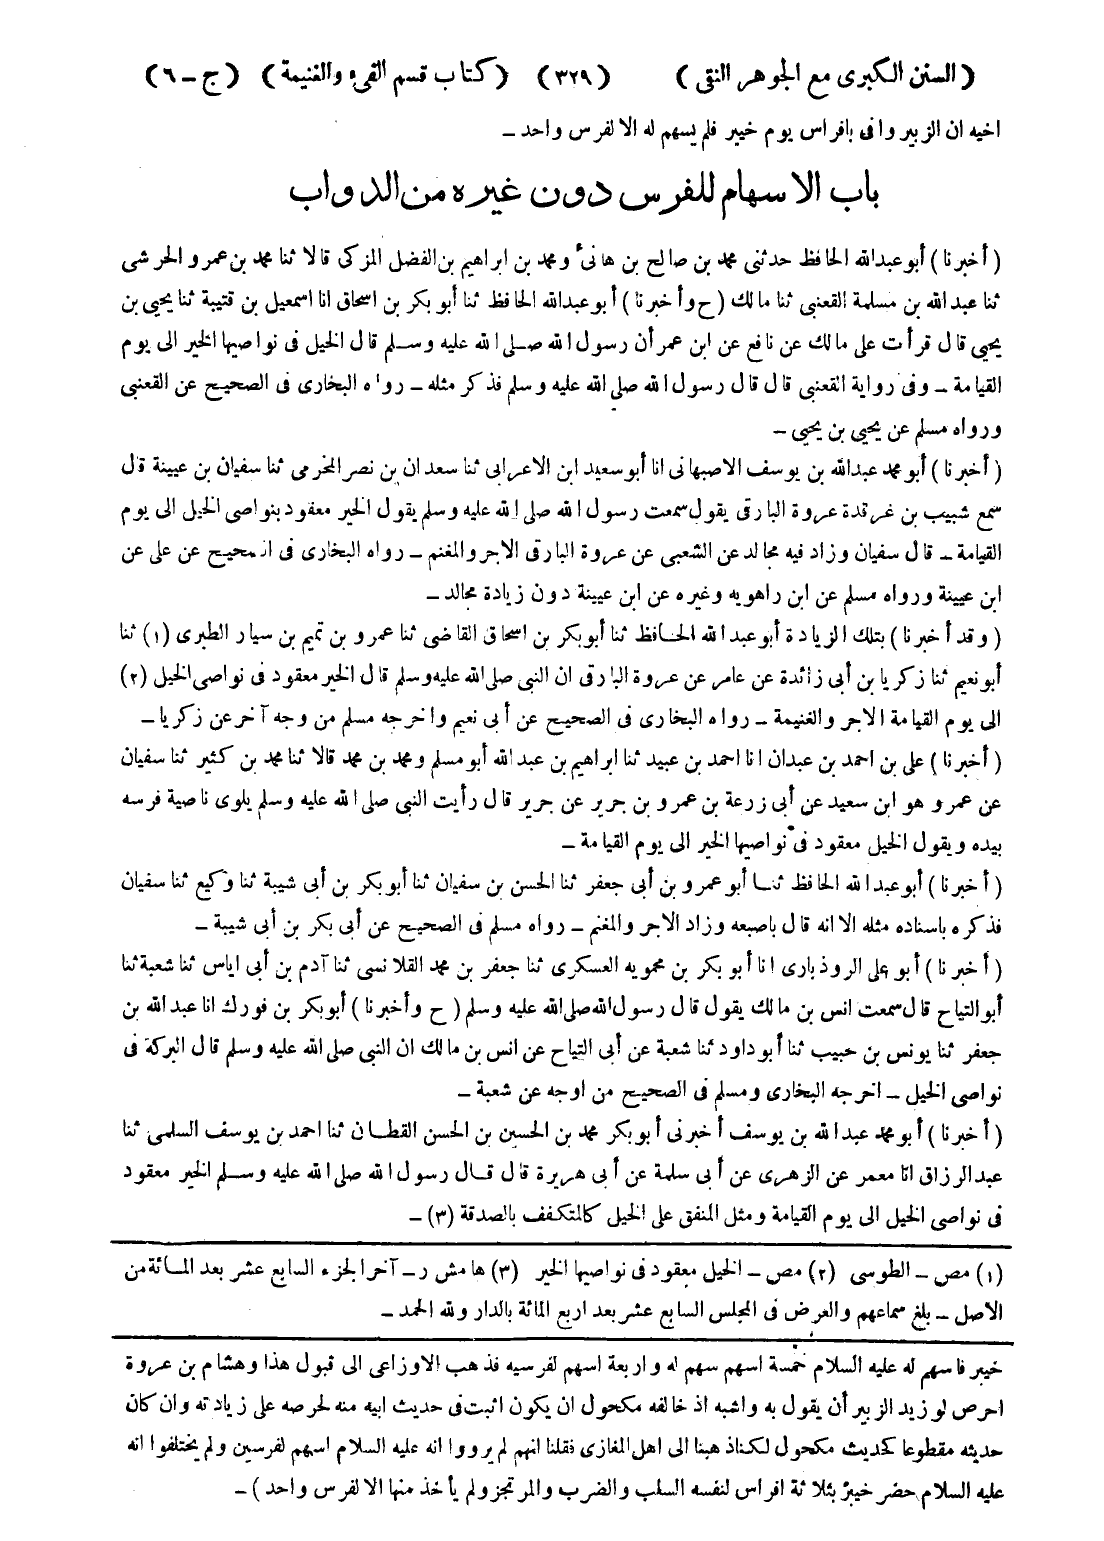 (السنن الكبرى مع الجوهر النقى) (٣٢٩) (كتاب قسم الفىء والغنيمة) (ج - ٦)
اخيه ان الزبير وافى بافراس يوم خيبر فلم يسهم له الا لفرس واحد -
باب الاسهام للفرس دون غيره من الدواب
(أخبرنا) أبو عبد الله الحافظ حدثنى محمد بن صالح بن هانئ ومحمد بن ابراهيم بن الفضل المزكى قالا ثنا محمد بن عمرو الحرشى
ثنا عبد الله بن مسلمة القعنبى ثنا مالك (ح وأخبرنا) أبو عبدالله الحافظ ثنا أبو بكر بن اسحاق انا اسمعيل بن قتيبة ثنا يحيى بن
يحيى قال قرأت على مالك عن نافع عن ابن عمر أن رسول الله صلى الله عليه وسلم قال الخيل فى نواصيها الخير الى يوم
القيامة - وفى رواية القعنبى قال قال رسول الله صلى الله عليه وسلم فذكر مثله - رواه البخارى فى الصحيح عن القعنبى
ورواه مسلم عن يحيى بن يحيى -
(أخبرنا) أبو محمد عبدالله بن يوسف الاصبهانى انا أبو سعيد ابن الاعرابى ثنا سعدان بن نصر المخرمى ثنا سفيان بن عيينة قال
سمع شبيب بن غرقدة عروة البارقى يقول سمعت رسول الله صلى الله عليه وسلم يقول الخير معقود بنواصى الخيل الى يوم
القيامة - قال سفيان وزاد فيه مجالد عن الشعبى عن عروة البارقى الاجر والمغنم - رواه البخارى فى الصحيح عن على عن
ابن عيينة ورواه مسلم عن ابن راهويه وغيره عن ابن عيينة دون زيادة مجالد -
(وقد أخبرنا) بتلك الزيادة أبو عبد الله الحافظ ثنا أبو بكر بن اسحاق القاضى ثنا عمرو بن تميم بن سيار الطبرى (١) ثنا
أبو نعيم ثنا زكريا بن أبى زائدة عن عامر عن عروة البارقى ان النبى صلى الله عليه وسلم قال الخير معقود فى نواصى الخيل (٢)
الى يوم القيامة الاجر والغنيمة - رواه البخارى فى الصحيح عن أبى نعيم واخرجه مسلم من وجه آخر عن زكريا -
(أخبرنا) على بن احمد بن عبدان انا احمد بن عبيد ثنا ابراهيم بن عبد الله أبو مسلم ومحمد بن محمد قالا ثنا محمد بن كثير ثنا سفيان
عن عمرو هو ابن سعيد عن أبى زرعة بن عمرو بن جرير عن جرير قال رأيت النبى صلى الله عليه وسلم يلوى ناصية فرسه
بيده ويقول الخيل معقود فى نواصيها الخير الى يوم القيامة -
(أخبرنا) أبو عبد الله الحافظ ثنا أبو عمرو بن أبى جعفر ثنا الحسن بن سفيان ثنا أبو بكر بن أبى شيبة ثنا وكيع ثنا سفيان
فذكره باسناده مثله الا انه قال باصبعه وزاد الاجر والمغنم - رواه مسلم فى الصحيح عن أبى بكر بن أبى شيبة -
(أخبرنا) أبو على الروذبارى انا أبو بكر بن محمويه العسكرى ثنا جعفر بن محمد القلانسى ثنا آدم بن أبى اياس ثنا شعبة ثنا
أبو التياح قال سمعت انس بن مالك يقول قال رسول الله صلى الله عليه وسلم (ح وأخبرنا) أبوبكر بن فورك انا عبد الله بن
جعفر ثنا يونس بن حبيب ثنا أبو داود ثنا شعبة عن أبى التياح عن انس بن مالك ان النبى صلى الله عليه وسلم قال البركة فى
نواصى الخيل - اخرجه البخارى ومسلم فى الصحيح من اوجه عن شعبة -
(أخبرنا) أبو محمد عبد الله بن يوسف أخبرنى أبو بكر محمد بن الحسين بن الحسن القطان ثنا احمد بن يوسف السلمى ثنا
عبد الرزاق انا معمر عن الزهرى عن أبى سلمة عن أبى هريرة قال قال رسول الله صلى الله عليه وسلم الخير معقود
فى نواصى الخيل الى يوم القيامة ومثل المنفق على الخيل كالمتكفف بالصدقة (٣) -
(١) مص - الطوسى (٢) مص - الخيل معقود فى نواصيها الخير (٣) هامش ر - آخر الجزء السابع عشر بعد المائة من
الاصل - بلغ سماعهم والعرض فى المجلس السابع عشر بعد اربع المائة بالدار ولله الحمد -
خيبر فاسهم له عليه السلام خمسة اسهم سهم له واربعة اسهم لفرسيه فذهب الاوزاعى الى قبول هذا وهشام بن عروة
احرص لو زيد الزبير أن يقول به واشبه اذ خالفه مكحول ان يكون اثبت فى حديث ابيه منه لحرصه على زيادته وان كان
حديثه مقطوعا كحديث مكحول لكنا ذهبنا الى اهل المغازى فقلنا انهم لم يرووا انه عليه السلام اسهم لفرسين ولم يختلفوا انه
عليه السلام حضر خيبر بثلاثة افراس لنفسه السلب والضرب والمرتجز ولم يأخذ منها الا لفرس واحد) -